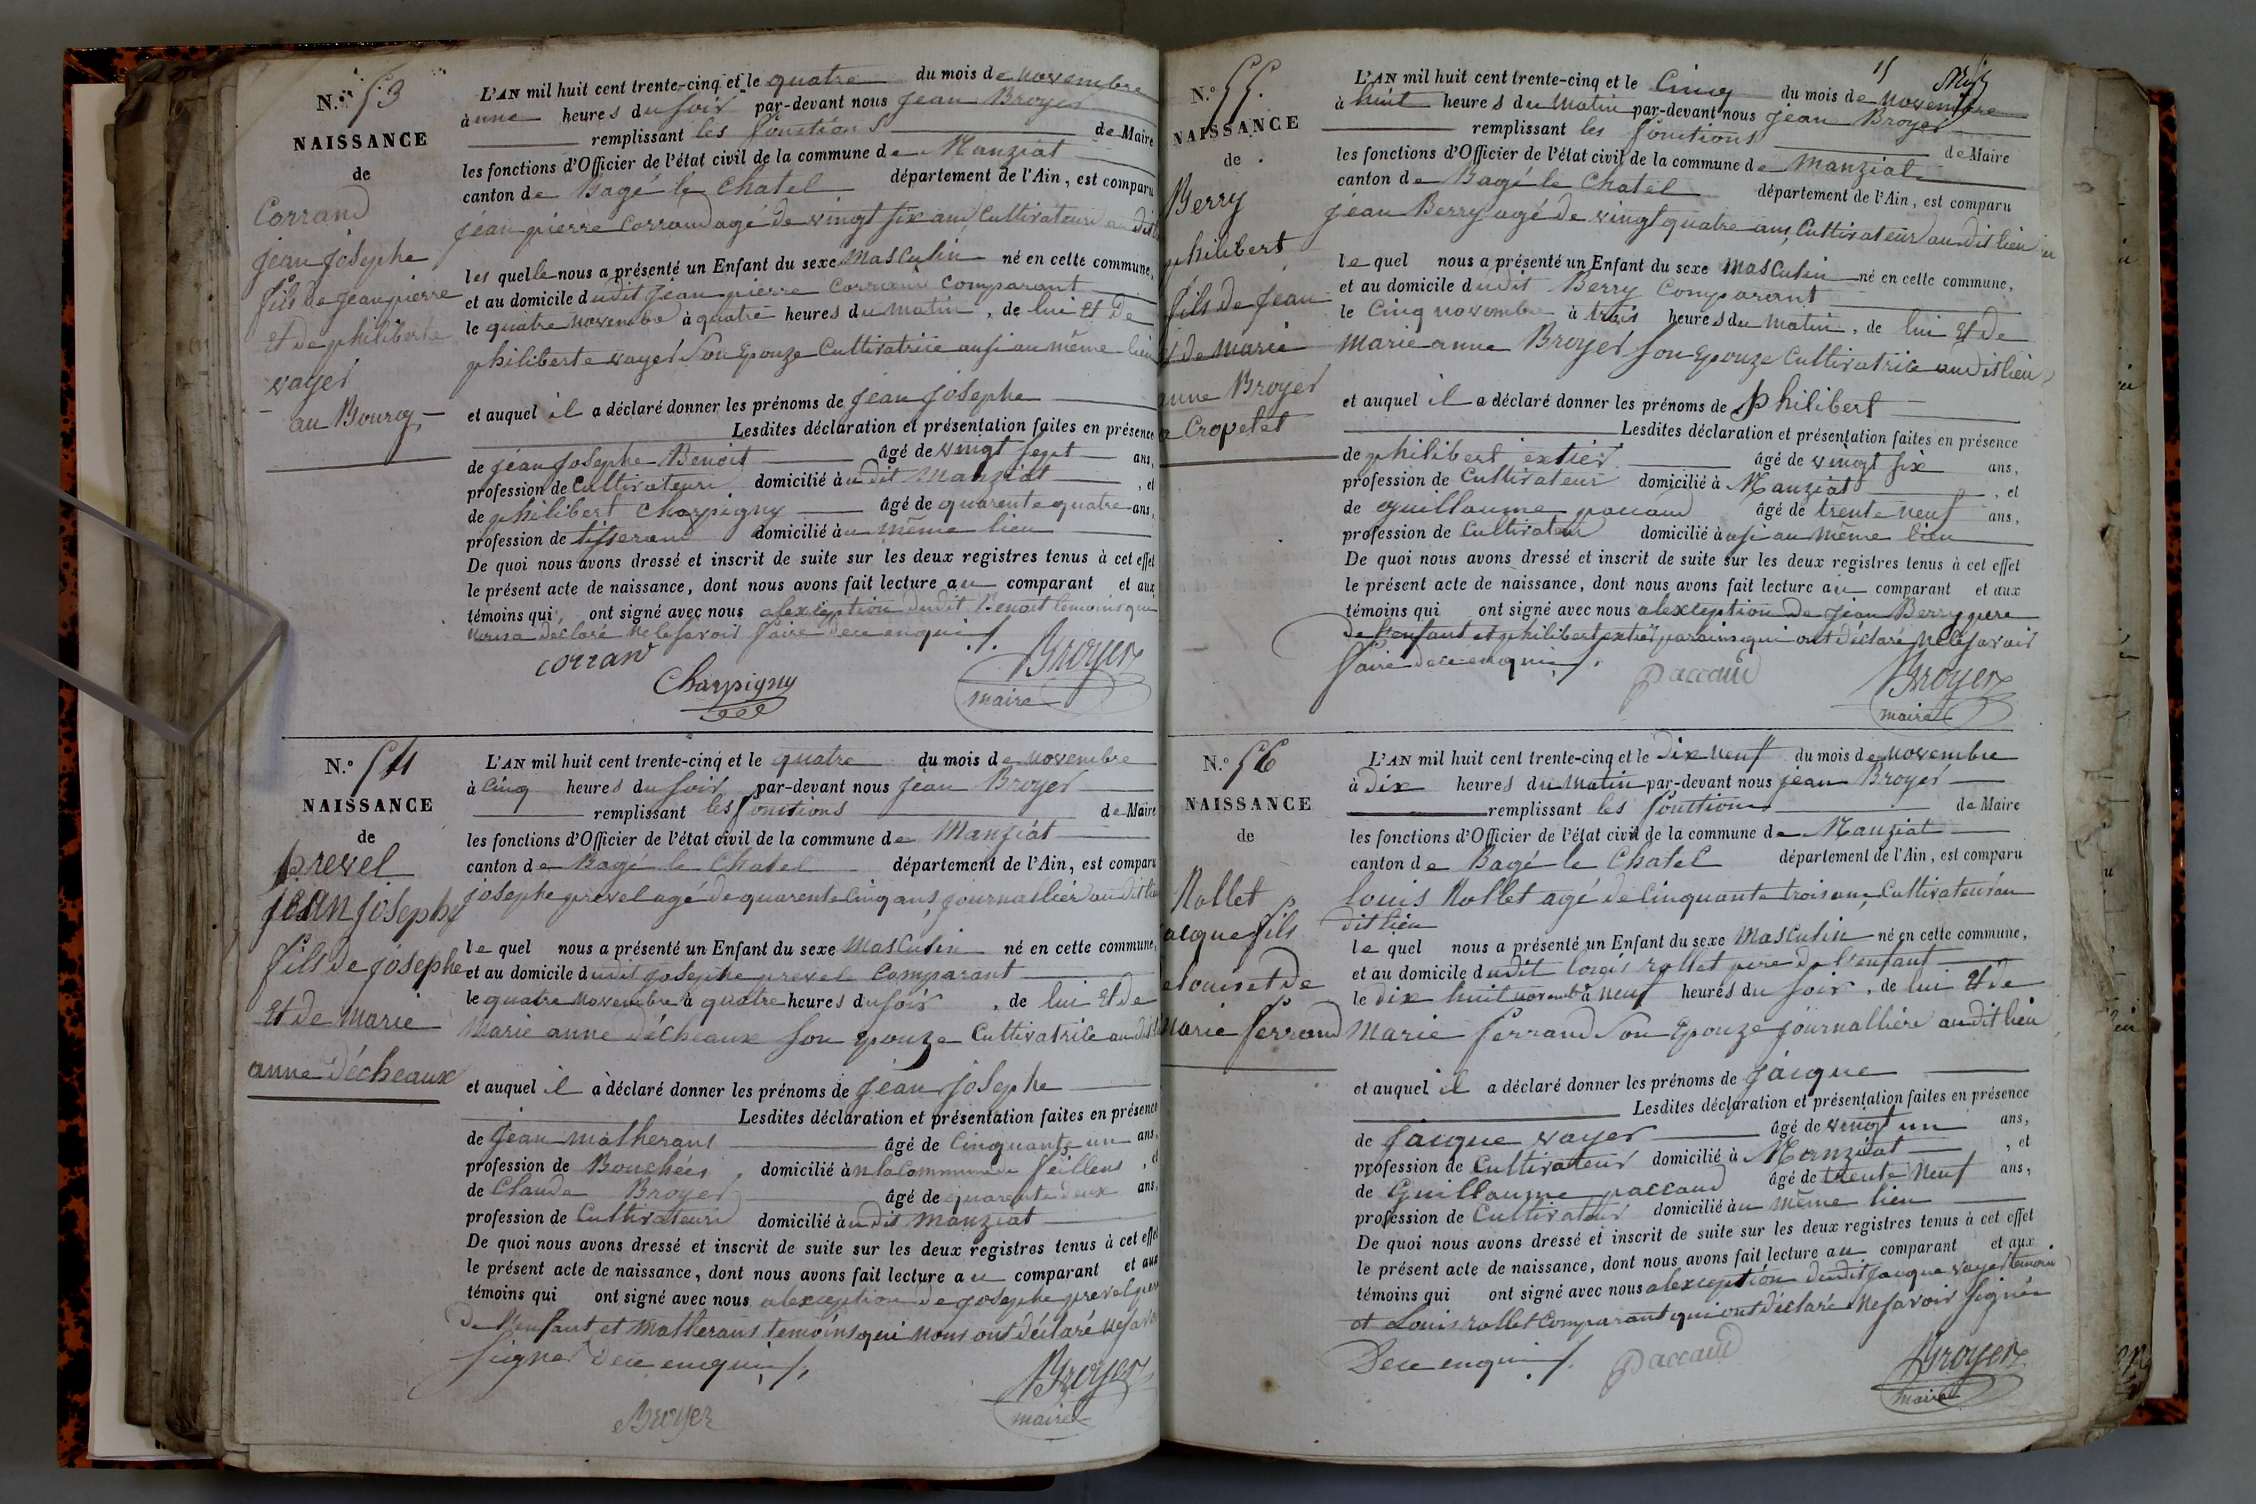 N.º 53
NAISSANCE
de
Corrand
jean josephe
fils de jean pierre
et de philiberte
vayer
au Bourg
L'AN mil huit cent trente-cinq et le quatre du mois de novembre
à une heures du soir par-devant nous jean Broyer
remplissant les fonctions de Maire
les fonctions d'Officier de l'état civil de la commune de Manziat
canton de Bagé le Chatel département de l'Ain, est comparu
jean pierre Corrand agé de vingt six ans Cultivateur au dit
les quelle nous a présenté un Enfant du sexe masculin né en cette commune,
et au domicile dudit jean pierre Corrand Comparant
le quatre novembre à quatre heures du matin, de lui et de
philiberte vayer son epouze Cultivatrice ausi au même lieu
et auquel il a déclaré donner les prénoms de jean josephe
Lesdites déclaration et présentation faites en présence
de jean josephe Benoit âgé de vingt sept ans,
profession de Cultivateur domicilié audit manziat, et
de philibert Charpigny âgé de quarente quatre ans,
profession de tisserand domicilié au même lieu
De quoi nous avons dressé et inscrit de suite sur les deux registres tenus à cet effet
le présent acte de naissance, dont nous avons fait lecture au comparant et aux
témoins qui ont signé avec nous alexception dudit Benoit temoins qui
nous a déclaré ne le savoir faire dece enquis
corrand
Charpigny
Broyer
maire
N.º 54
NAISSANCE
de
prevel
jean josephe
fils de josephe
et de marie
anne décheaux
L'AN mil huit cent trente-cinq et le quatre du mois de novembre
à cinq heures du soir par-devant nous jean Broyer
remplissant les fonctions de Maire
les fonctions d'Officier de l'état civil de la commune de Manziat
canton de Bagé le Chatel département de l'Ain, est comparu
josephe prevel agé de quarente cinq ans, journallier audit lieu
le quel nous a présenté un Enfant du sexe masculin né en cette commune,
et au domicile dudit josephe prevel Comparant
le quatre novembre à quatre heures du soir, de lui et de
marie anne décheaux son epouze Cultivatrice audit
et auquel il a déclaré donner les prénoms de jean josephe
Lesdites déclaration et présentation faites en présence
de jean matherans âgé de Cinquante un ans,
profession de Bouchées domicilié à la Commune de feillens, et
de Claude Broyer âgé de quarente deux ans,
profession de Cultivateur domicilié audit manziat
De quoi nous avons dressé et inscrit de suite sur les deux registres tenus à cet effet
le présent acte de naissance, dont nous avons fait lecture au comparant et aux
témoins qui ont signé avec nous alexception de josephe prevel pere
de l'enfant et matherans temoins qui nous ont déclaré ne savoir
signer dece enquis
Broyer
Broyer
maire
15
N.º 55.
NAISSANCE
de
Berry
philibert
fils de jean
et de marie
anne Broyer
a Cropetet
L'AN mil huit cent trente-cinq et le Cinq du mois de novembre
à huit heures du matin par-devant nous jean Broyer
remplissant les fonctions de Maire
les fonctions d'Officier de l'état civil de la commune de manziat
canton de Bagé le Chatel département de l'Ain, est comparu
jean Berry agé de vingt quatre ans, Cultivateur audit lieu
le quel nous a présenté un Enfant du sexe masculin né en cette commune,
et au domicile dudit Berry Comparant
le Cinq novembre à trois heures du matin, de lui et de
marie anne Broyer son epouze Cultivatrice audit lieu
et auquel il a déclaré donner les prénoms de philibert
Lesdites déclaration et présentation faites en présence
de philibert extier âgé de vingt six ans,
profession de Cultivateur domicilié à Manziat, et
de guillaume paccaud âgé de trente neuf ans,
profession de Cultivateur domicilié ausi au même lieu
De quoi nous avons dressé et inscrit de suite sur les deux registres tenus à cet effet
le présent acte de naissance, dont nous avons fait lecture au comparant et aux
témoins qui ont signé avec nous alexception de jean Berry pere
de l'enfant et philibert extier parains qui ont déclaré ne le savoir
faire dece enquis
paccaud
Broyer
maire
N.º 56
NAISSANCE
de
Rollet
jacque fils
de louis et de
marie ferrand
L'AN mil huit cent trente-cinq et le dix neuf du mois de novembre
à dix heures du matin par-devant nous jean Broyer
remplissant les fonctions de Maire
les fonctions d'Officier de l'état civil de la commune de Manziat
canton de Bagé le Chatel département de l'Ain, est comparu
louis Rollet agé de cinquante trois ans, Cultivateur au
dit lieu
le quel nous a présenté un Enfant du sexe masculin né en cette commune,
et au domicile dudit louis rollet pere de l'enfant
le dix huit novembre à neuf heures du soir, de lui et de
marie ferrand son epouze journalliere audit lieu
et auquel il a déclaré donner les prénoms de jacque
Lesdites déclaration et présentation faites en présence
de jacque vayer âgé de vingt un ans,
profession de Cultivateur domicilié à Manziat, et
de Guillaume paccaud âgé de trente neuf ans,
profession de Cultivateur domicilié au même lieu
De quoi nous avons dressé et inscrit de suite sur les deux registres tenus à cet effet
le présent acte de naissance, dont nous avons fait lecture au comparant et aux
témoins qui ont signé avec nous alexception dudit jacque vayer temoin
et Louis rollet Comparant qui ont déclaré ne savoir signer
Dece enquis
paccaud
Broyer
maire